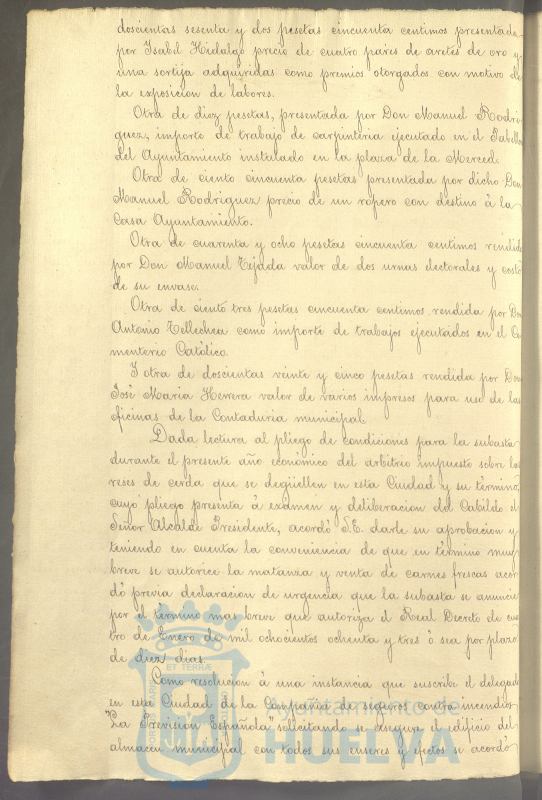 doscientas sesenta y dos pesetas cincuenta centimos presentada
por Isabel Hidalgo precio de cuatro pares de aretes de oro y
una sortija adquiridas como premios otorgados con motivo de
la exposicion de labores.
Otra de diez pesetas, presentada por Don Manuel Rodri-
guez, importe de trabajo de carpinteria ejecutado en el Pabellon
del Ayuntamiento instalado en la plaza de la Merced.
Otra de ciento cincuenta pesetas presentada por dicho Don
Manuel Rodriguez precio de un ropero con destino á la
Casa Ayuntamiento.
Otra de cuarenta y ocho pesetas cincuenta centimos rendida
por Don Manuel Tejada valor de dos urnas electorales y costo
de su envase.
Otra de ciento tres pesetas cincuenta centimos rendida por Don
Antonio Tellechea como importe de trabajos ejecutados en el Ce
menterio Católico.
I otra de doscientas veinte y cinco pesetas rendida por Don
José Maria Herrera valor de varios impresos para uso de las
oficinas de la Contaduria municipal.
Dada lectura al pliego de condiciones para la subasta
durante el presente año económico del arbitrio impuesto sobre las
reses de cerda que se degüellen en esta Ciudad y su término,
cuyo pliego presenta á exámen y deliberacion del Cabildo el
Señor Alcalde Presidente, acordó S.E. darle su aprobacion y
teniendo en cuenta la conveniencia de que en término muy
breve se autorice la matanza y venta de carnes frescas acor
dó previa declaracion de urgencia que la subasta se anuncie
por el término mas breve que autoriza el Real Decreto de cua
tro de Enero de mil ochocientos ochenta y tres ó sea por plazo
de diez dias.
Como resolucion á una instancia que suscribe el delegado
en esta Ciudad de la Compañia de seguros contra incendios
"La Prevision Española" solicitando se asegure el edificio del
almacen municipal con todos sus enseres y efectos se acordó
ET TERRÆ
Ayuntamiento de
HUELVA